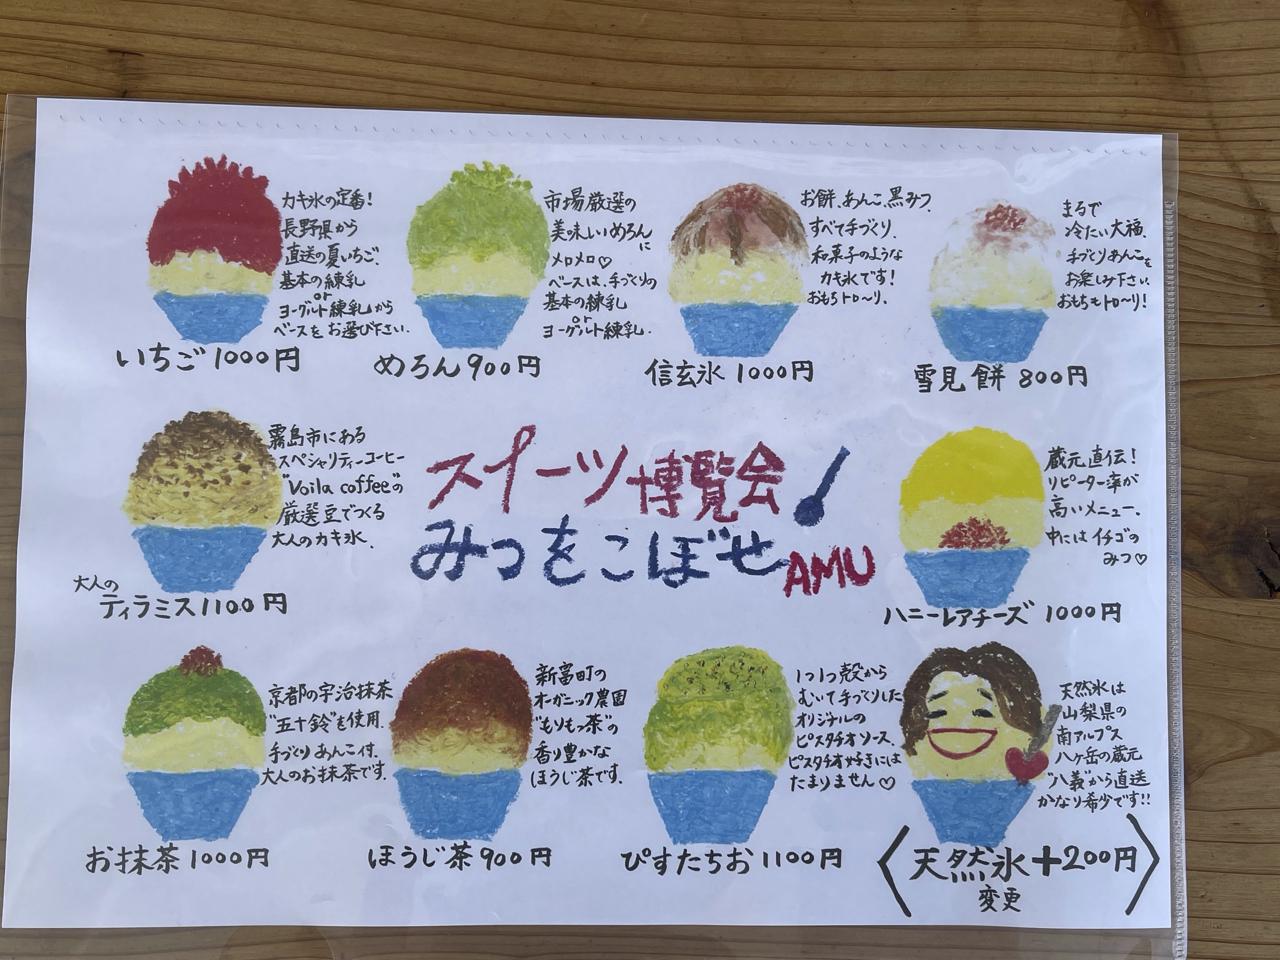 カキ氷の定番!
長野県から
直送の夏いちご。
基本の練乳
or
ヨーグルト練乳から
ベースをお選び下さい.
いちご1000円
市場厳選の
美味しいめろん
に
メロメロ♡
ベースは、手づくりの
基本の練乳
or
ヨーグルト練乳.
めろん900円
お餅、あんこ、黒みつ、
すべて手づくり、
和菓子のような
カキ氷です!
おもちトロ〜リ、
信玄氷 1000円
まるで
冷たい大福。
手づくりあんこを
お楽しみ下さい
おもちもトロ〜リ!
雪見餅 800円
霧島市にある
スペシャリティーコーヒー
"Voila coffee"の
厳選豆でつくる
大人のカキ氷、
大人の
ティラミス1100円
スイーツ博覧会
みつをこぼせAMU
蔵元直伝!
リピーター率が
高いメニュー、
中にはイチゴの
みつ♡
ハニーレアチーズ 1000円
京都の宇治抹茶
"五十鈴"を使用、
手づくりあんこ付、
大人のお抹茶です.
お抹茶1000円
新富町の
オーガニック農園
"もりもっ茶"の
香り豊かな
ほうじ茶です。
ほうじ茶900円
1つ1つ殻から
むいて手づくりした
オリジナルの
ピスタチオソース、
ピスタチオ好きには
たまりません♡
ぴすたちお1100円
天然氷は
山梨県の
南アルプス
八ヶ岳の蔵元
"八義"から直送
かなり希少です!!
〈天然氷+200円〉
変更